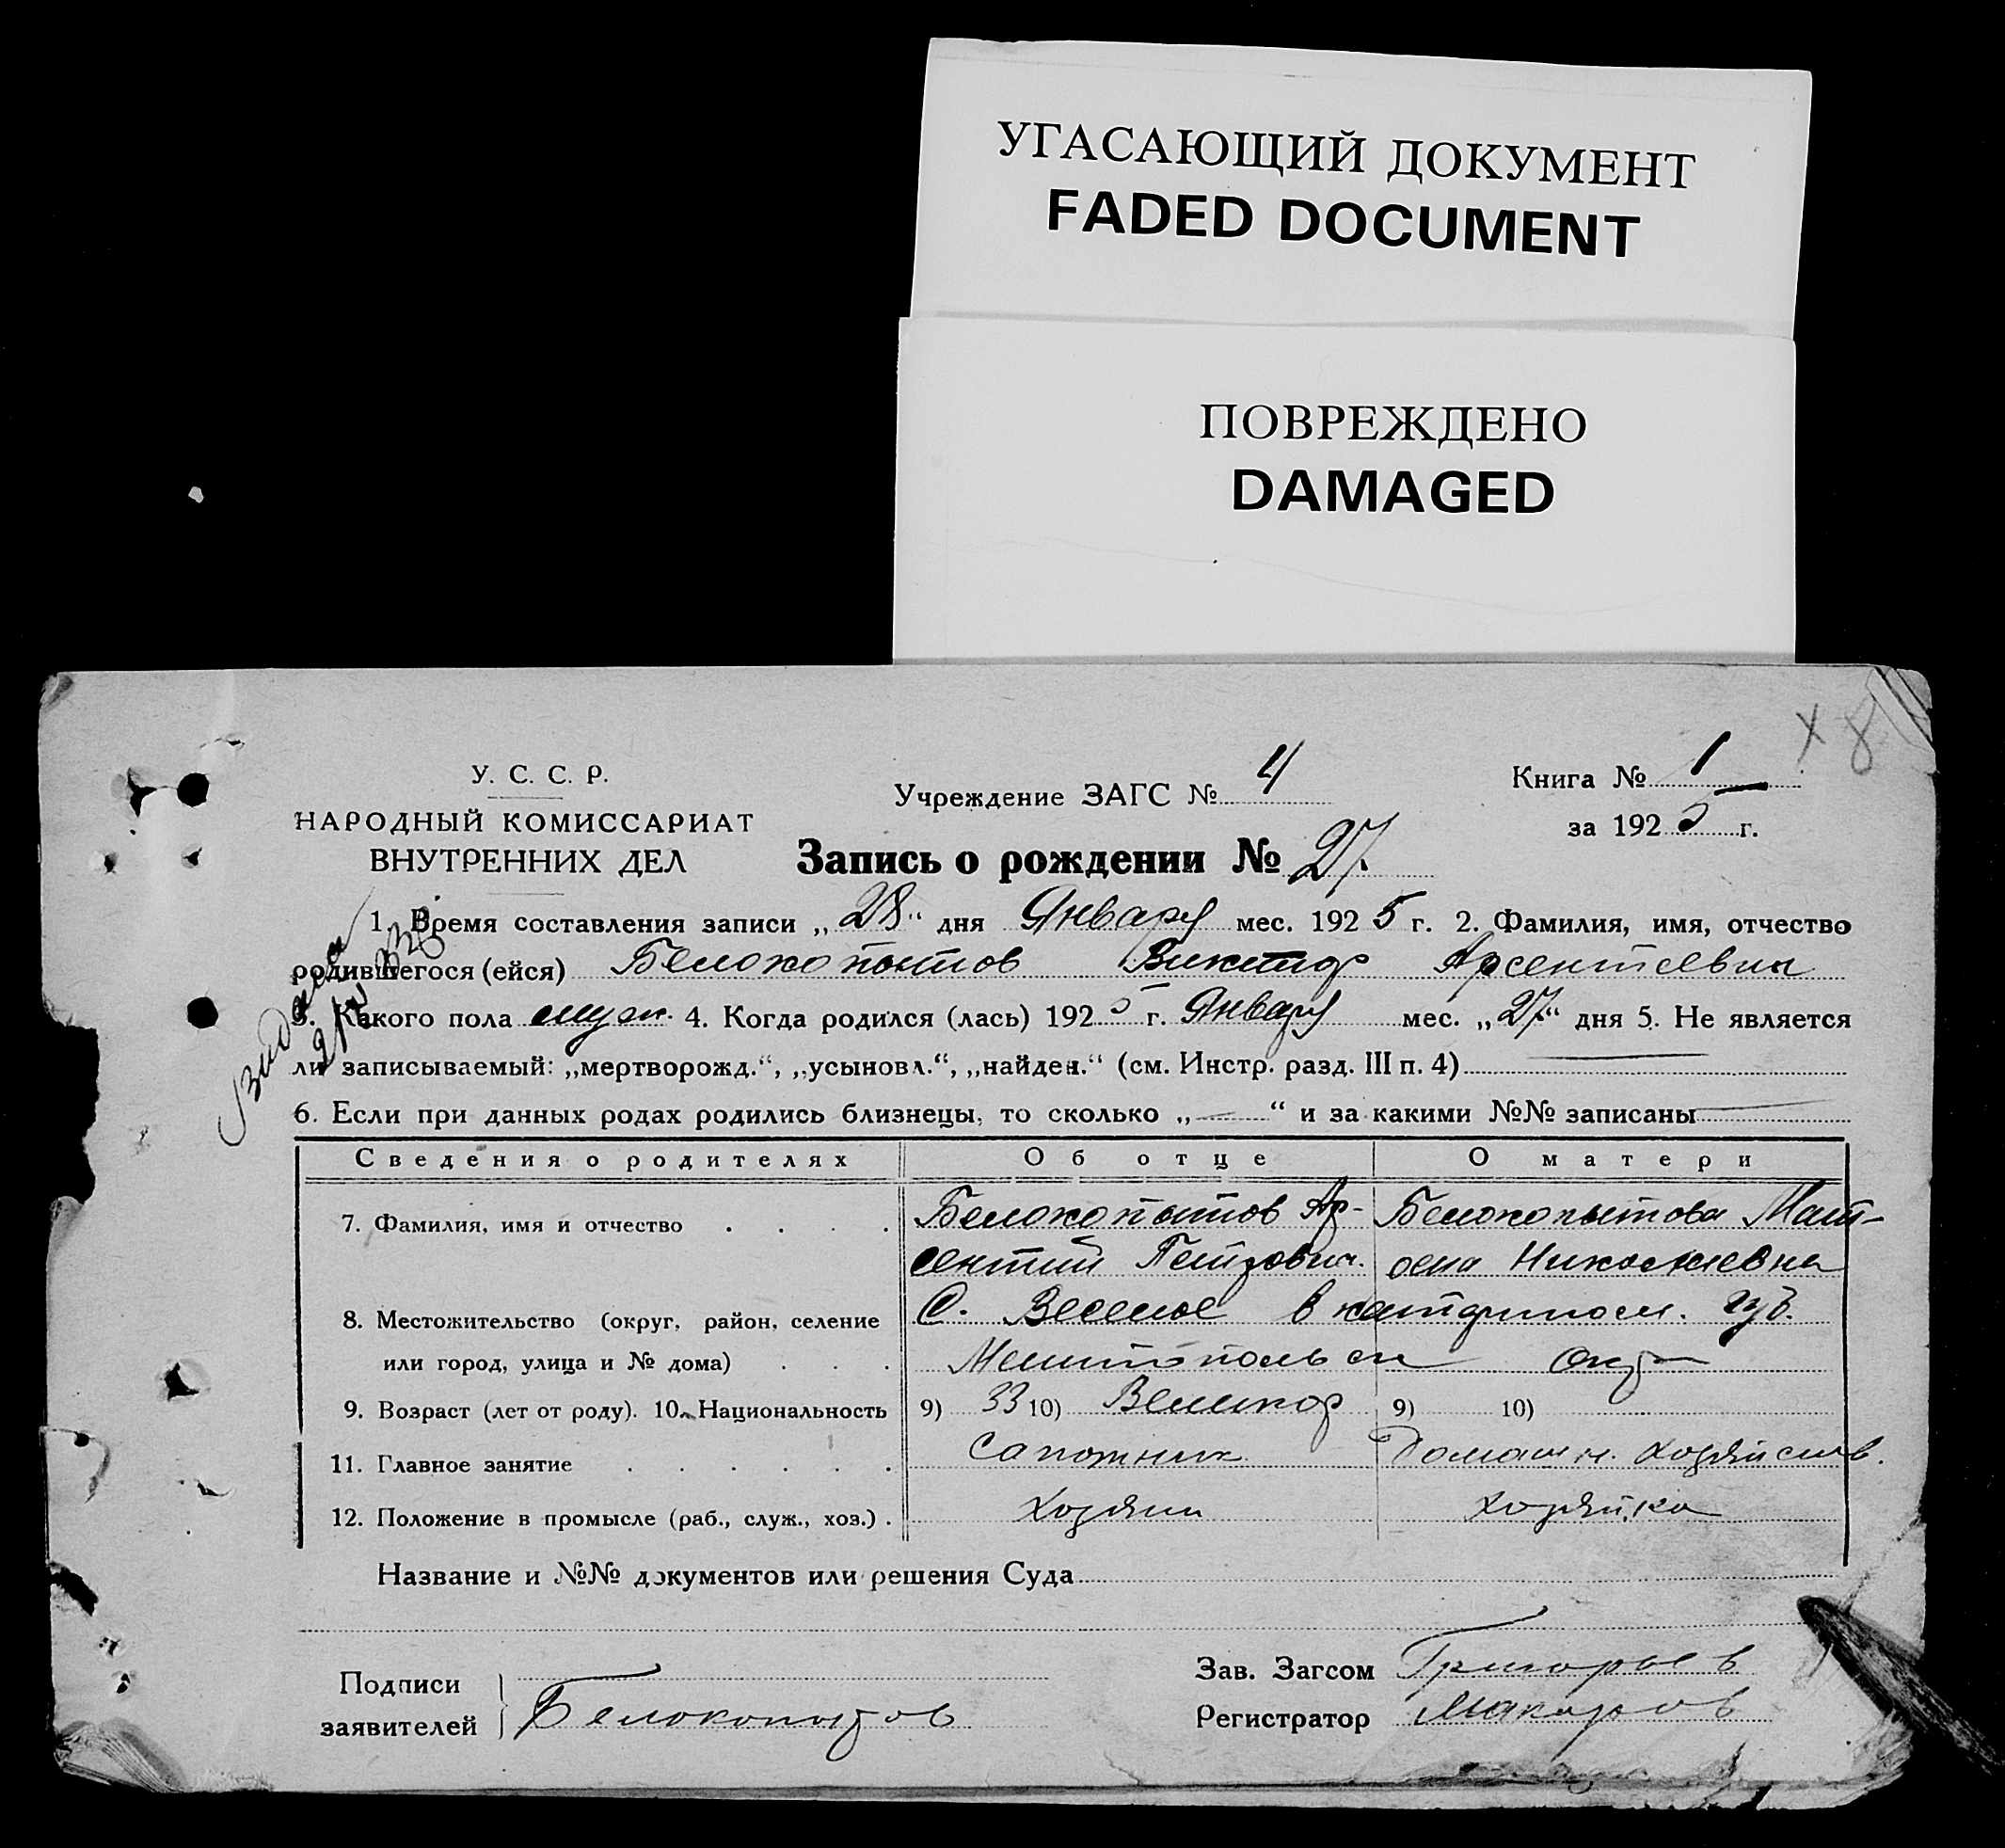 УГАСАЮЩИЙ ДОКУМЕНТ
FADED DOCUMENT
ПОВРЕЖДЕНО
DAMAGED
х 8
У. С. С. Р.
НАРОДНЫЙ КОМИССАРИАТ
ВНУТРЕННИХ ДЕЛ
Учреждение ЗАГС № 4
Книга № 1
за 1925 г.
Запись о рождении № 27.
1. Время составления записи „28“ дня Января мес. 1925 г. 2. Фамилия, имя, отчество
родившегося (ейся) Белокопытов Виктор Арсентиевич
3. Какого пола муж. 4. Когда родился (лась) 1925 г. Января мес. „27“ дня 5. Не является
ли записываемый: „мертворожд.“, „усыновл.“, „найден.“ (см. Инстр. разд. III п. 4)
6. Если при данных родах родились близнецы, то сколько „—“ и за какими №№ записаны —
Сведения о родителях Об отце О матери
7. Фамилия, имя и отчество . . . . Белокопытов Ар- Белокопытова Мат-
сентий Петрович. рена Николаевна
8. Местожительство (округ, район, селение С. Веселое Екатеринос. губ.
или город, улица и № дома) . . . Мелитопольск Окр
9. Возраст (лет от роду). 10. Национальность 9) 33 10) Великор 9) 10)
11. Главное занятие . . . . . . Сапожник Домашн. хозяйств.
12. Положение в промысле (раб., служ., хоз.) . Хозяин хозяйка
Название и №№ документов или решения Суда
Подписи
заявителей Белокопытов
Зав. Загсом Григорьев
Регистратор Макаров